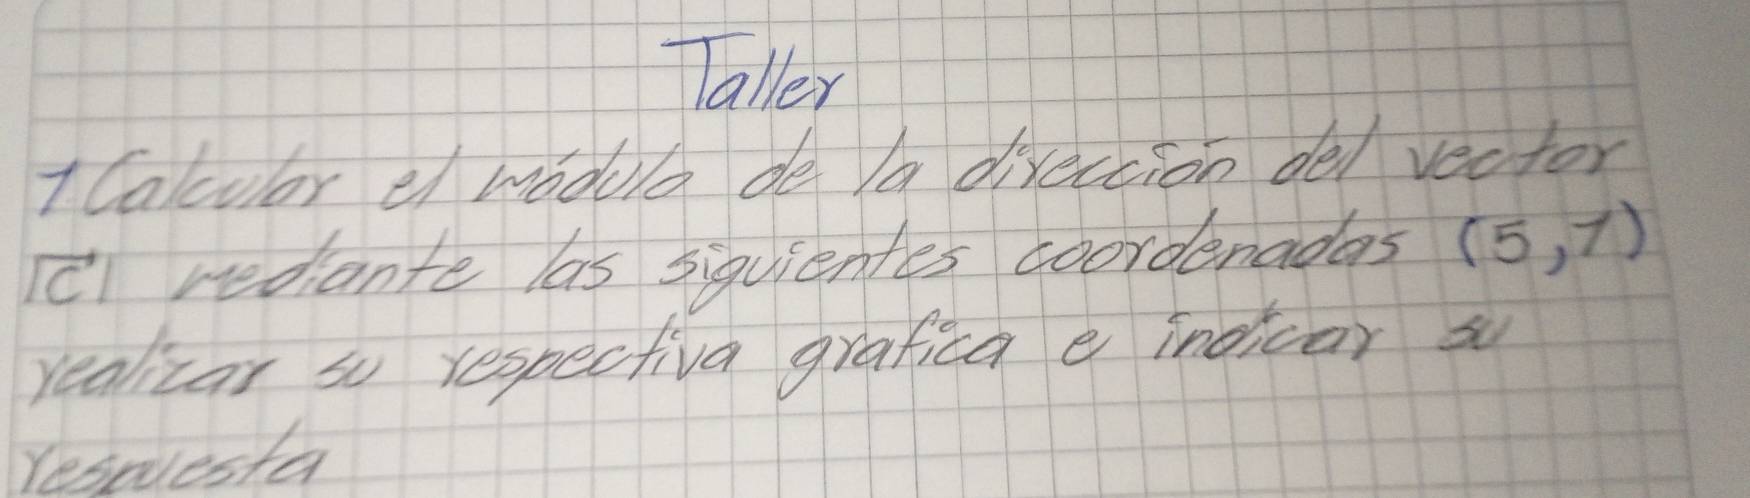 Taller
1 Calcular el módulo de la dirección del vector
|C⃗| mediante las siguientes coordenadas (5,1)
realizar su respectiva grafica e indicar su
respuesta